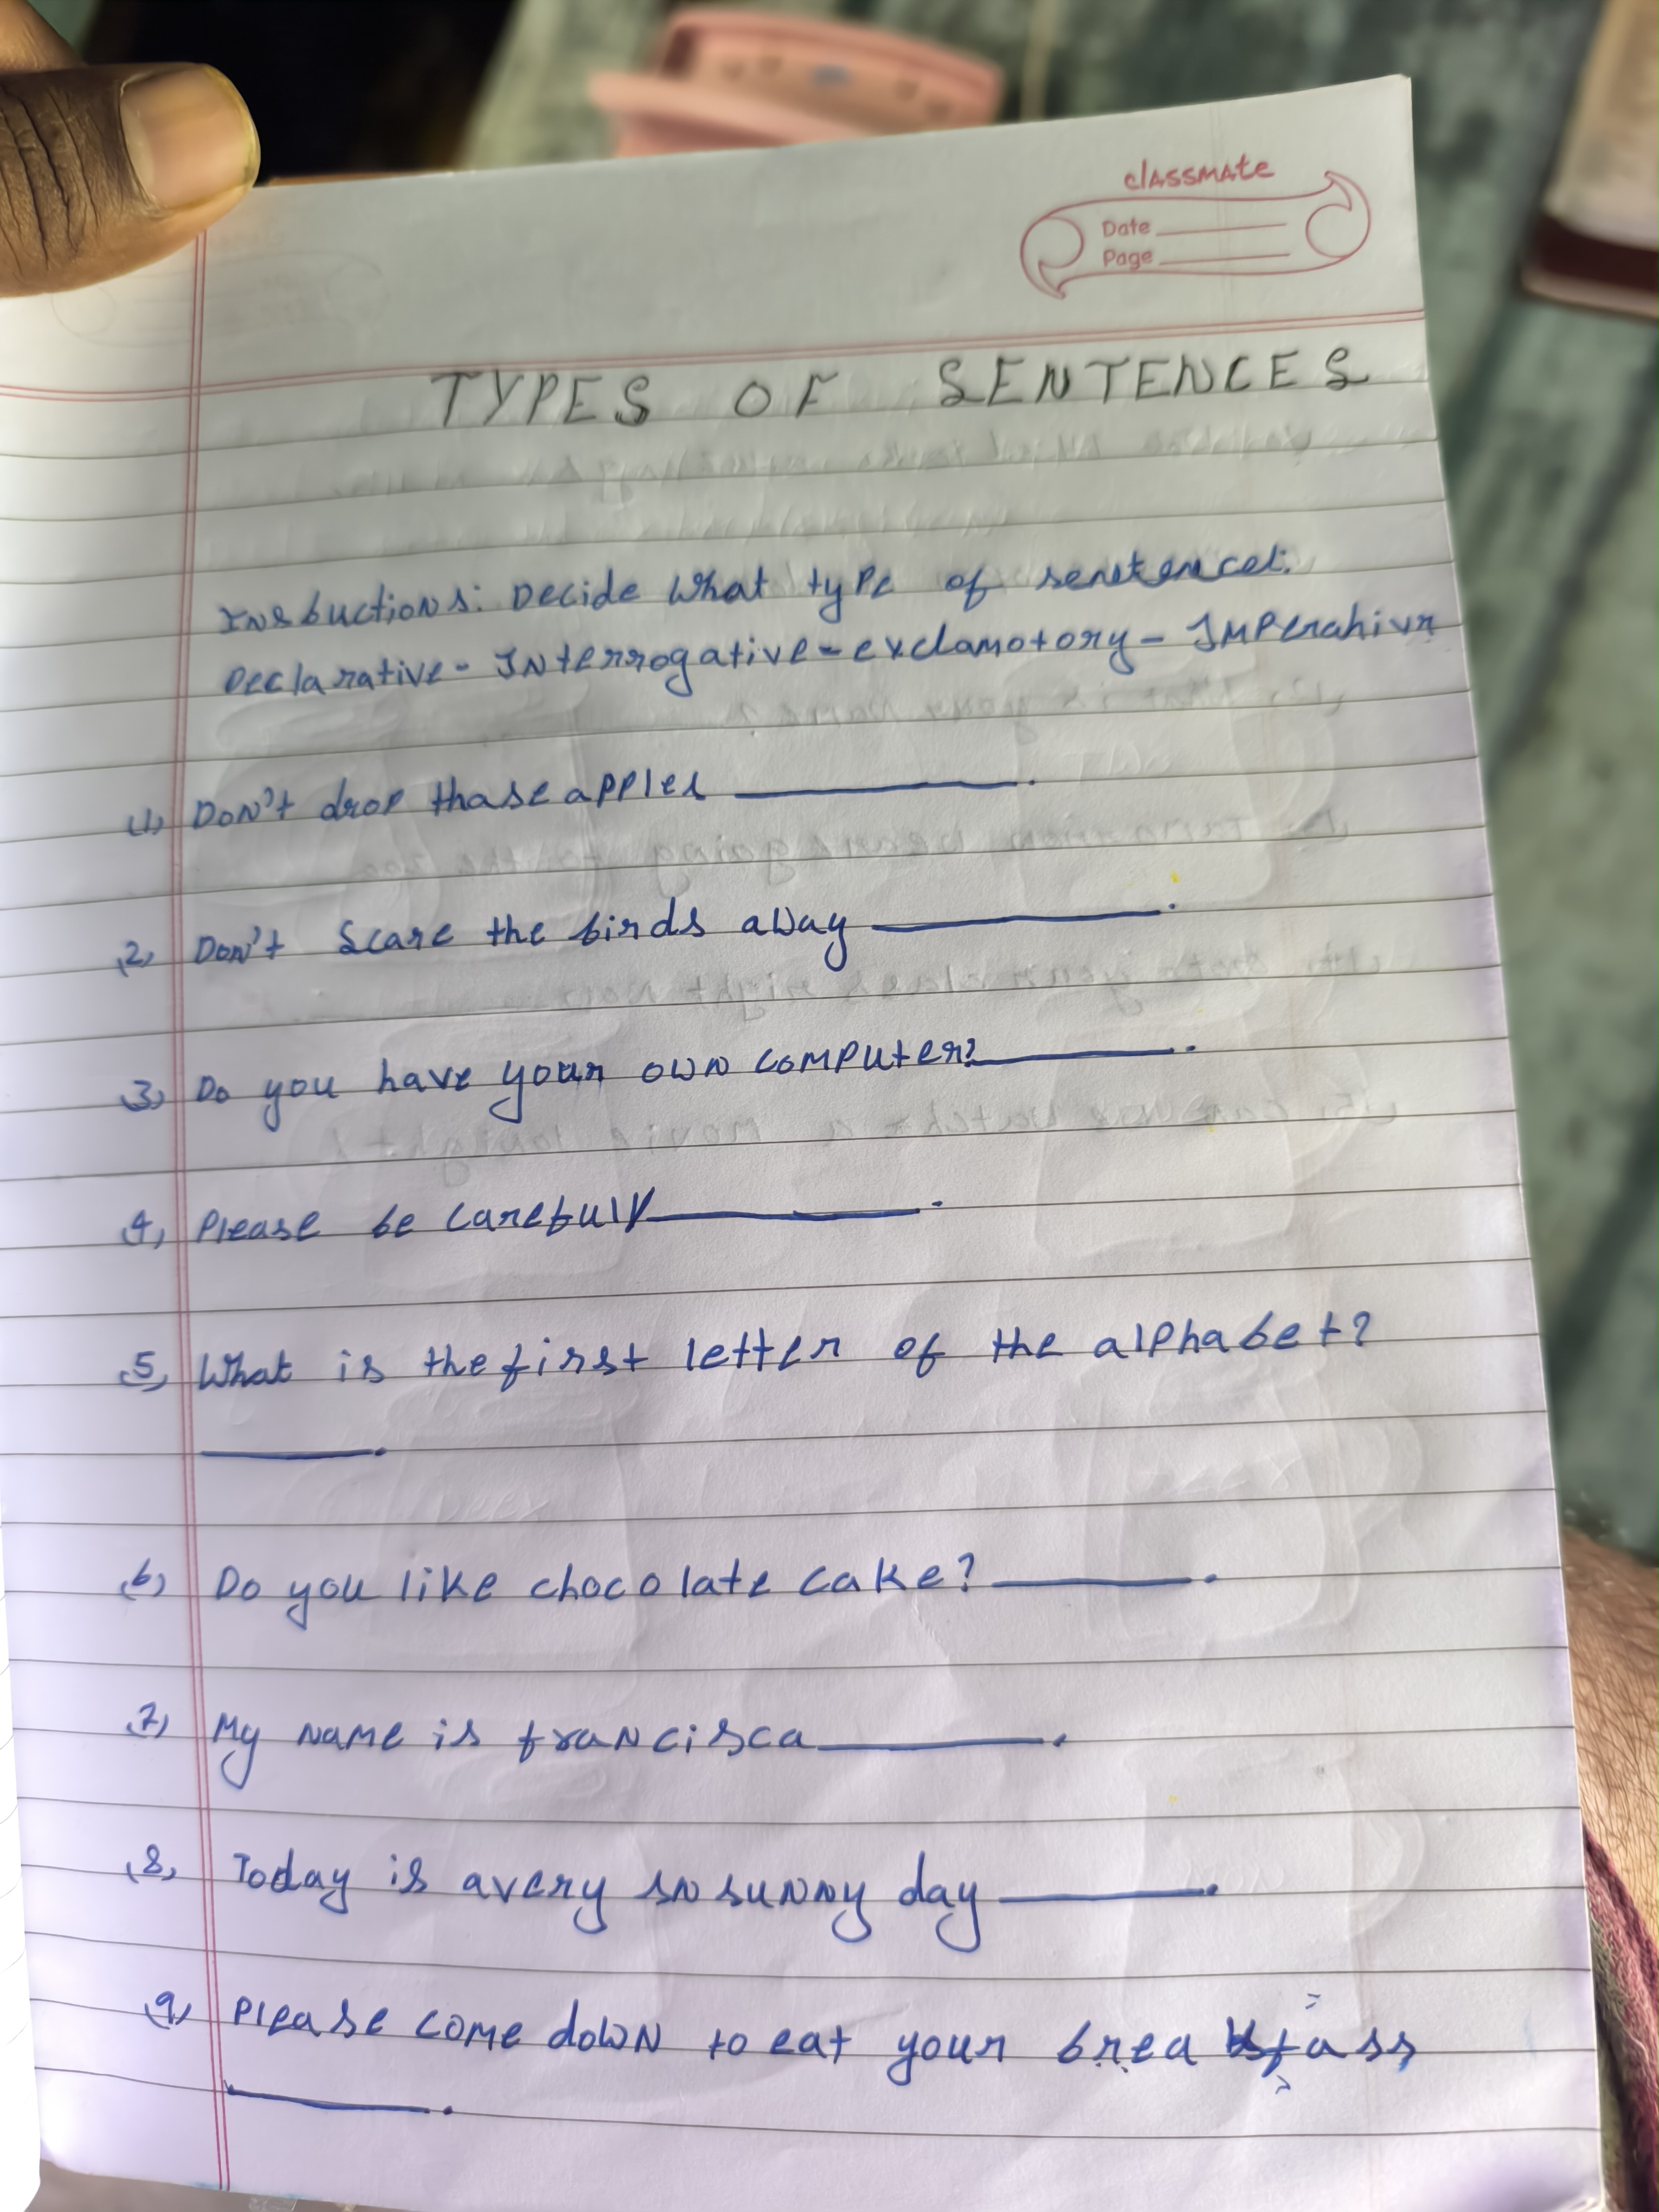 classmate
Date
Page
TYPES OF SENTENCES
Instuctions: Decide What type of
Declarative - Interrogative - exclamotory - Imperative
(1) Don't drop thase apples ______.
(2) Don't Scare the birds away ______.
(3) Do you have your own computer? ______.
(4) Please be carefully ______.
(5) What is the first letter of the alphabet?
______.
(6) Do you like chocolate cake? ______.
(7) My name is francisca ______.
(8) Today is a very sn sunny day ______.
(9) Please come down to eat your breakfass
______.